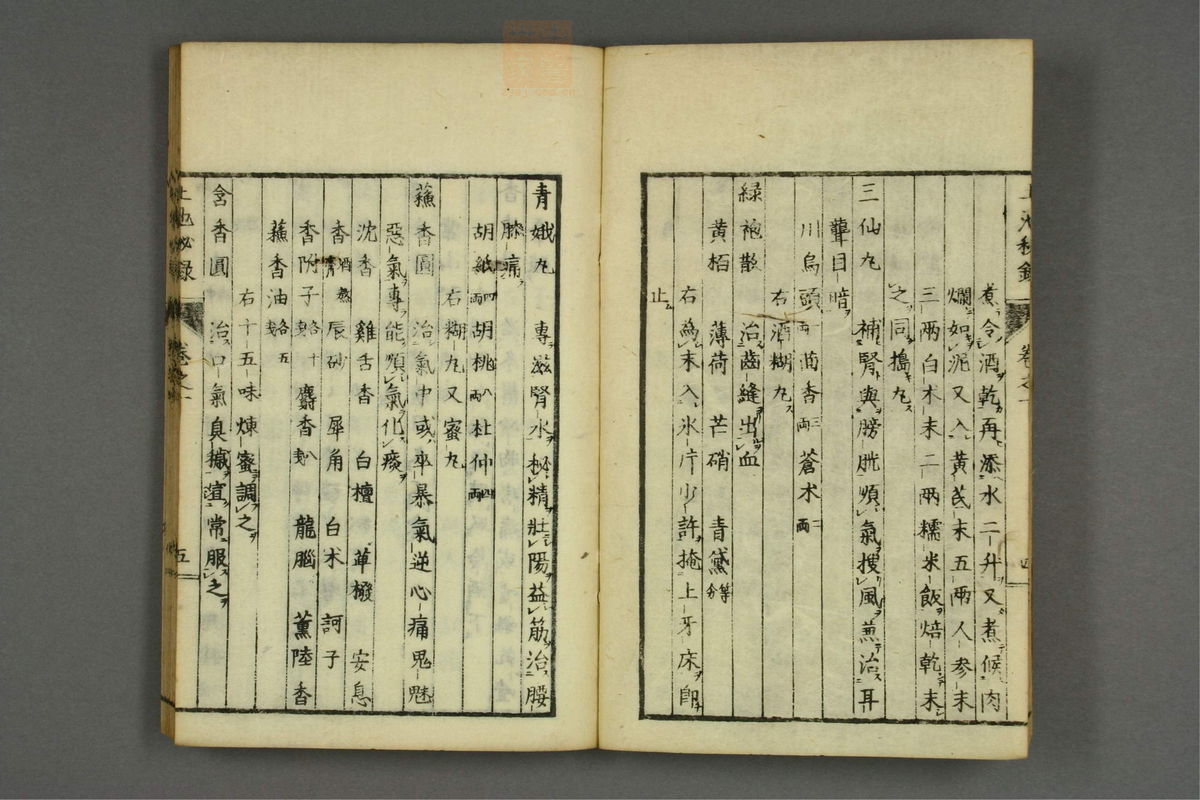 煮令酒乾再添水二升又煮候肉
爛如泥又入黄芪末五兩人參末
三兩白朮末二兩糯米飯焙乾末
之同搗丸
三仙丸 補腎與膀胱順氣搜風兼治耳
聾目暗
川烏頭一兩 茴香三兩 蒼朮二兩
右酒糊丸
緑袍散 治齒縫出血
黄栢 薄荷 芒硝 青黛等分
右為末入氷片少許掩上牙床即
止
上池秘録 卷之一 四
青娥丸 專滋腎水極精壯陽益筋治腰
膝痛
胡紙四兩 胡桃八兩 杜仲四兩
右糊丸又蜜丸
蘓香圓 治氣中或卒暴氣逆心痛鬼魅
惡氣專能順氣化痰
沈香 雞舌香 白檀 蓽撥 安息
香 辰砂 犀角 白朮 訶子
香附子各十 麝香八 龍腦 薫陸香
蘓香油各五
右十五味煉蜜調之
含香圓 治口氣臭穢宜常服之
上池秘録 卷之一 五